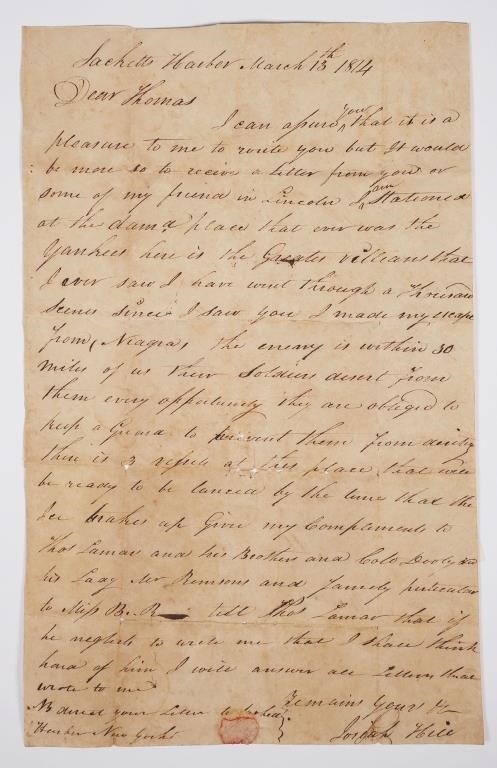 Sacketts Harbor March 13th 1814
Dear Thomas
I can assure you that it is a
pleasure to me to write you but It would
be more so to recive a letter from you or
some of my friend in Lincoln I am Stationed
at the damd place that ever was the
Yankees here is the Greates villians that
I ever saw I have went through a Thousand
Scenes since I saw you I made my escape
from Niagra, the enemy is within 30
miles of us their Soldiers desert from
them every oppertunity they are obleged to
keep a Guard to prevent them from
there is 3 vessels at this place that will
be ready to be lanced by the time that the
Ice brakes up Give my Compliments to
Thos Lamar and his Brothers and Colo Dooly and
his Lady Mr Remsons and family perticular
to Miss B. R tell Thos Lamar that if
he neglets to write me that I shall think
hard of him I will answer all Letters that
wrote to me
Remains yours &c
NB direct your Letter to
Harbor New York
Josiah Hill